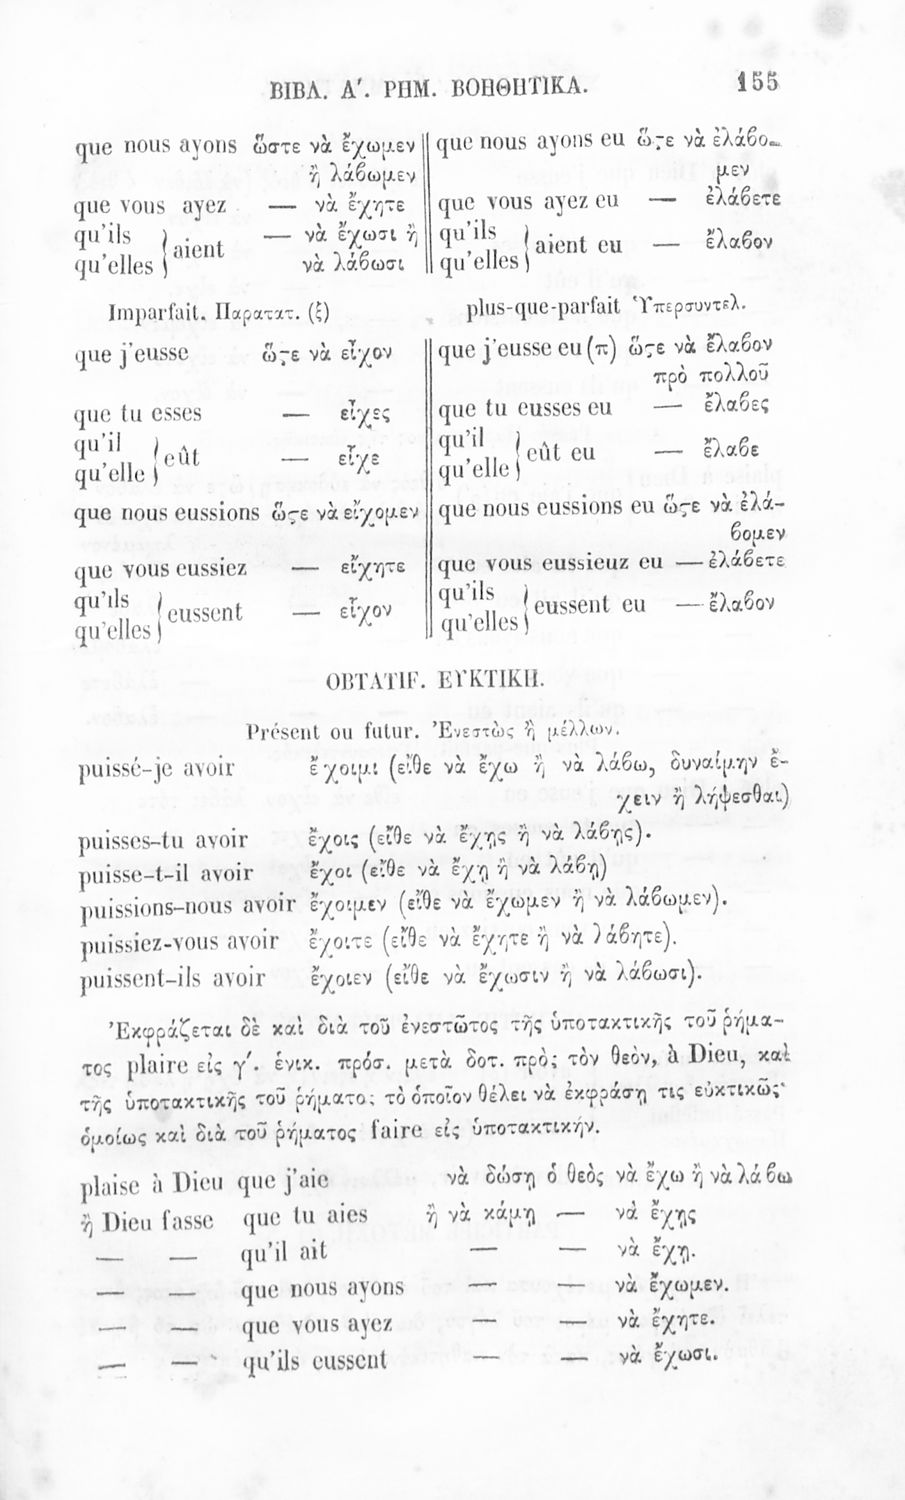 ΒΙΒΛ. Α′. ΡΗΜ. ΒΟΗΘΗΤΙΚΑ. 155
que nous ayons ὥστε νὰ ἔχωμεν
ἢ λάβωμεν
que vous ayez — νὰ ἔχητε
qu'ils
qu'elles } aient — νὰ ἔχωσι ἢ
νὰ λάβωσι
que nous ayons eu ὥςε νὰ ἐλάβο-
μεν
que vous ayez eu — ἐλάβετε
qu'ils
qu'elles } aient eu — ἔλαβον
Imparfait. Παρατατ. (ξ)
que j'eusse ὥςε νὰ εἶχον
que tu esses — εἶχες
qu'il
qu'elle } eût — εἶχε
que nous eussions ὥςε νὰ εἴχομεν
que vous eussiez — εἴχητε
qu'ils
qu'elles } eussent — εἶχον
plus-que-parfait Ὑπερσυντελ.
que j'eusse eu (π) ὥςε νὰ ἔλαβον
πρὸ πολλοῦ
que tu eusses eu — ἔλαβες
qu'il
qu'elle } eût eu — ἔλαβε
que nous eussions eu ὥςε νὰ ἐλά-
βομεν
que vous eussieuz eu — ἐλάβετε
qu'ils
qu'elles } eussent eu — ἔλαβον
OBTATIF. ΕΥΚΤΙΚΗ.
Présent ou futur. Ἐνεστὼς ἢ μέλλων.
puissé-je avoir ἔχοιμι (εἴθε νὰ ἔχω ἢ νὰ λάβω, δυναίμην ἔ-
χειν ἢ λήψεσθαι)
puisses-tu avoir ἔχοις (εἴθε νὰ ἔχῃς ἢ νὰ λάβῃς).
puisse-t-il avoir ἔχοι (εἴθε νὰ ἔχῃ ἢ νὰ λάβῃ)
puissions-nous avoir ἔχοιμεν (εἴθε νὰ ἔχωμεν ἢ νὰ λάβωμεν).
puissiez-vous avoir ἔχοιτε (εἴθε νὰ ἔχητε ἢ νὰ λάβητε).
puissent-ils avoir ἔχοιεν (εἴθε νὰ ἔχωσιν ἢ νὰ λάβωσι).
Ἐκφράζεται δὲ καὶ διὰ τοῦ ἐνεστῶτος τῆς ὑποτακτικῆς τοῦ ῥήμα-
τος plaire εἰς γ′. ἑνικ. πρόσ. μετὰ δοτ. πρὸς τὸν θεὸν, à Dieu, καὶ
τῆς ὑποτακτικῆς τοῦ ῥήματος τὸ ὁποῖον θέλει νὰ ἐκφράσῃ τις εὐκτικῶς·
ὁμοίως καὶ διὰ τοῦ ῥήματος faire εἰς ὑποτακτικήν.
plaise à Dieu que j'aie νὰ δώσῃ ὁ θεὸς νὰ ἔχω ἢ νὰ λάβω
ἢ Dieu fasse que tu aies ἢ νὰ κάμῃ — νὰ ἔχῃς
— — qu'il ait — — νὰ ἔχῃ.
— — que nous ayons — — νὰ ἔχωμεν.
— — que vous ayez — — νὰ ἔχητε.
— — qu'ils eussent — — νὰ ἔχωσι.